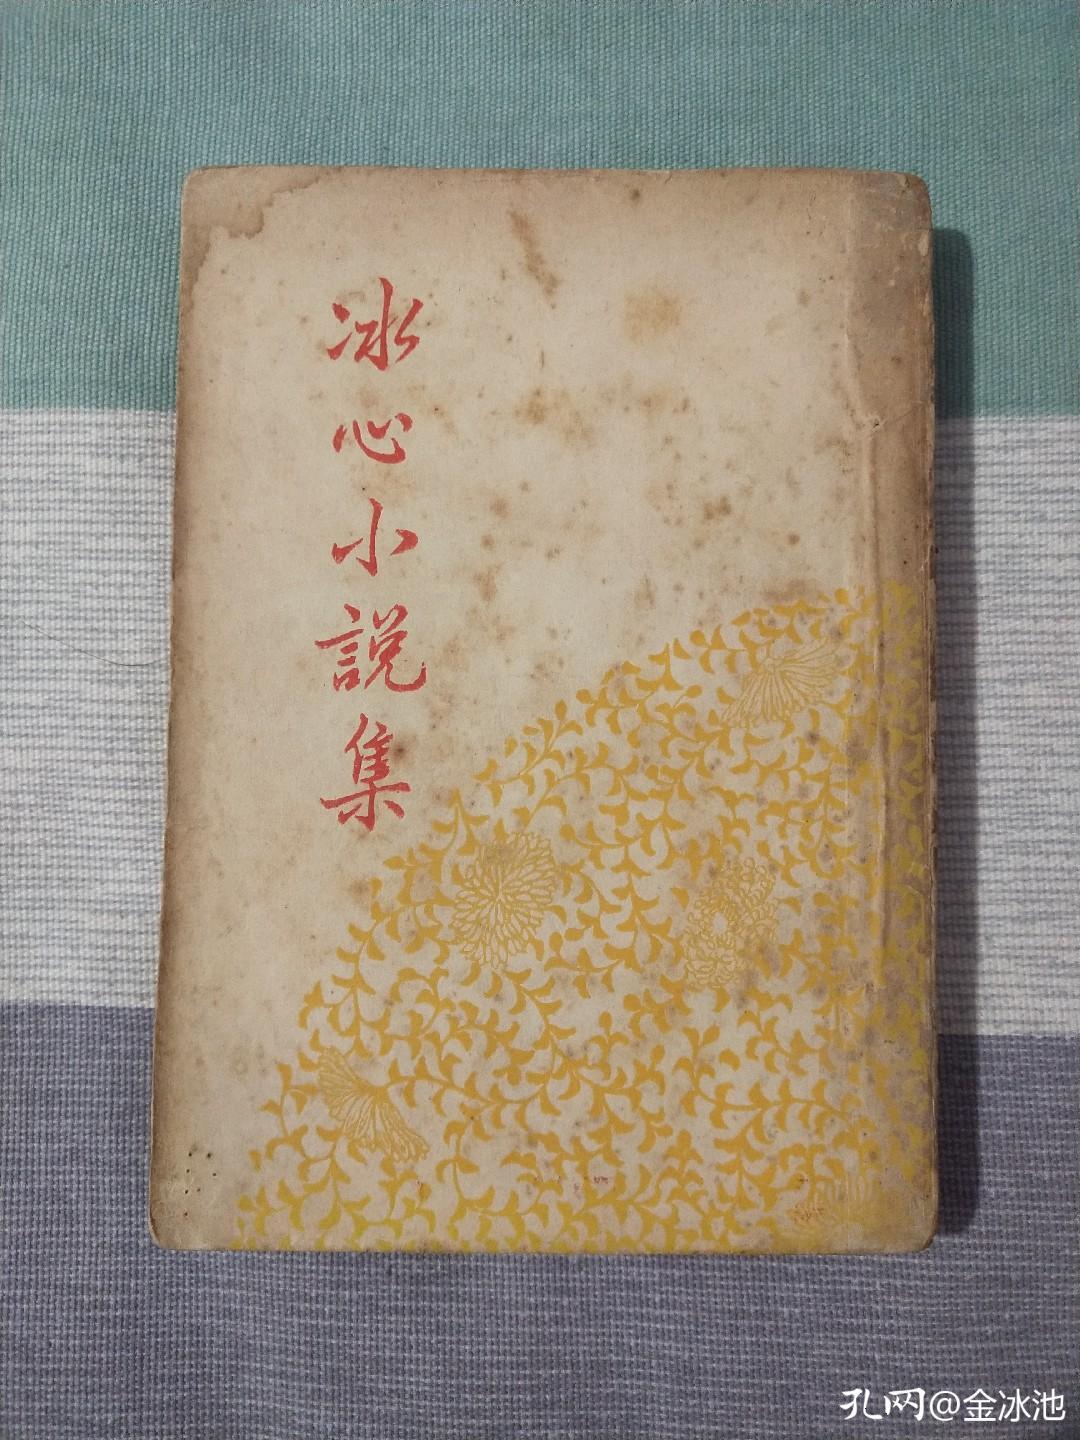 冰心小説集
孔网@金冰池